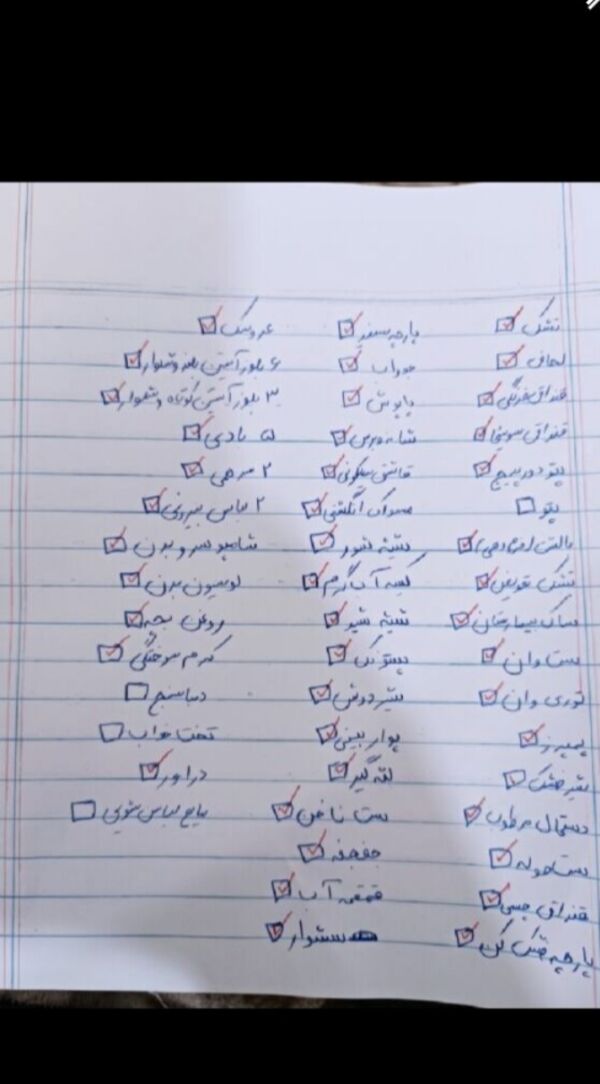 تشک
لحاف
قنداق فرنگی
قنداق سوئیشا
پتو دورپیچ
پتو
بالش (فرم‌دهی)
تشک تعویض
ساک بیمارستان
ست وان
توری وان
پمپرز
شیر خشک
دستمال مرطوب
ست حوله
قنداق چسبی
پارچه خشک کن
پارچه سفید
جوراب
پاپوش
شانه برس
قاشق سیلیکونی
مسواک انگشتی
شیشه شور
کیسه آب گرم
شیشه شیر
پستونک
شیردوش
پوار بینی
لقه گیر
ست ناخن
جغجغه
قمقمه آب
سشوار
عروسک
۶ بلوز آستین بلند و شلوار
۳ بلوز آستین کوتاه و شلوار
۵ بادی
۲ سرهمی
۲ لباس بیرونی
شامپو سر و بدن
لوسیون بدن
روغن بچه
کرم سوختگی
دماسنج
تخت خواب
دراور
مایع لباس شویی